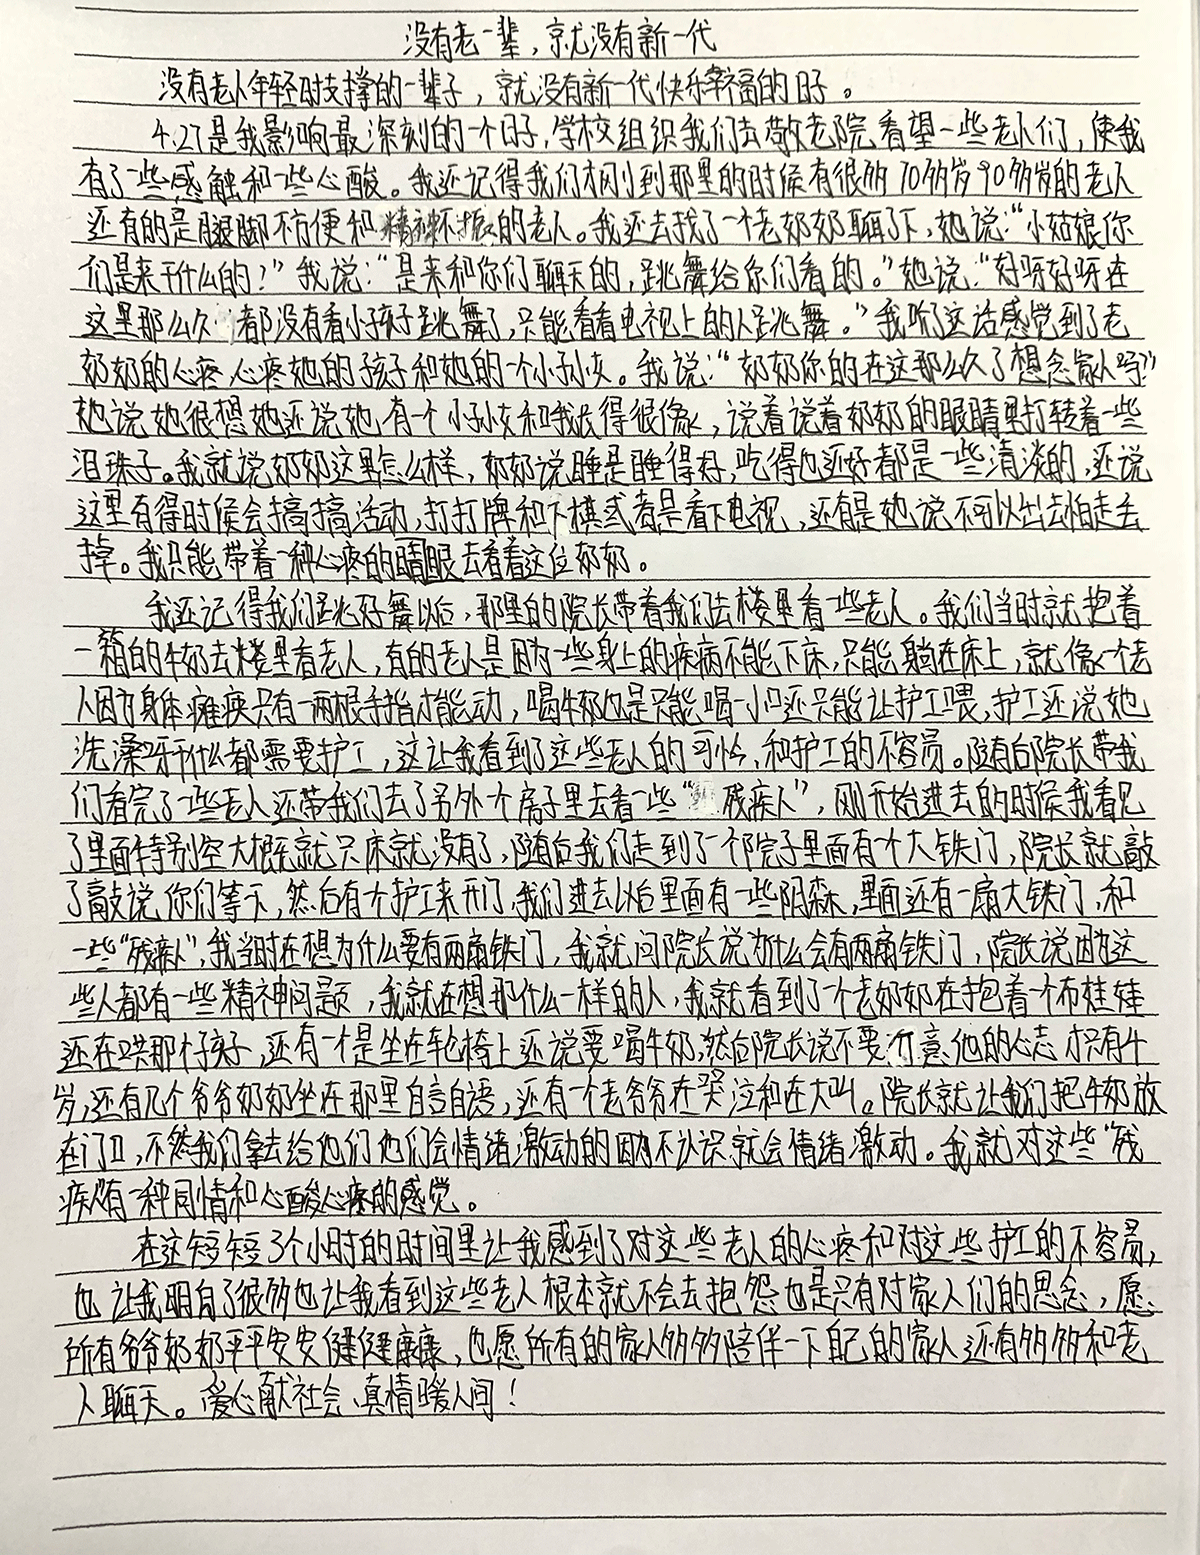 没有老一辈，就没有新一代
没有老人年轻时支撑的一辈子，就没有新一代快乐幸福的日子。
4.27是我影响最深刻的一个日子，学校组织我们去敬老院看望一些老人们，使我
有了一些感触和一些心酸。我还记得我们刚到那里的时候有很多70多岁90多岁的老人
还有的是腿脚不方便和精神不振的老人。我还去找了一个老奶奶聊了下，她说：“小姑娘你
们是来干什么的！”我说：“是来和你们聊天的，跳舞给你们看的。”她说：“好呀好呀在
这里那么久都没有看小孩子跳舞了，只能看看电视上的人跳舞。”我听了这话感觉到了老
奶奶的心疼心疼她的孩子和她的一个小孙女。我说：“奶奶你的在这那么久了想念家人吗？”
她说她很想她还说她有一个小孙女和我长得很像，说着说着奶奶的眼睛里打转着一些
泪珠子。我就说奶奶这里怎么样，奶奶说睡是睡得好，吃得也还好都是一些清淡的，还说
这里有得时候会搞搞活动，打打牌和下棋或者是看下电视，还有是她说不可以出去怕走丢
掉。我只能带着一种心疼的睛眼去看着这位奶奶。
我还记得我们跳好舞以后，那里的院长带着我们去楼里看一些老人。我们当时就抱着
一箱的牛奶去楼里看老人，有的老人是因为一些身上的疾病不能下床，只能躺在床上，就像一个老
人因为身体瘫痪只有一两根手指才能动，喝牛奶也是只能喝一小口还只能让护工喂，护工还说她
洗澡牙什么都需要护工，这让我看到了这些老人的可怜，和护工的不容易。随后院长带我
们看完了一些老人还带我们去了另外一个房子里去看一些“残疾人”，刚开始进去的时候我看见
了里面特别空大概就只床就没有了，随后我们走到了一个院子里面有一个大铁门，院长就敲
了敲说你们等下，然后有个护工来开门，我们进去以后里面有一些阴森，里面还有一扇大铁门，和
一些“残疾人”，我当时在想为什么要有两扇铁门，我就问院长说为什么会有两扇铁门，院长说因为这
些人都有一些精神问题，我就在想那什么一样的人，我就看到了一个老奶奶在抱着一个布娃娃
还在哄那个孩子，还有一个是坐在轮椅上还说要喝牛奶，然后院长说不要介意他的心志才只有4
岁，还有几个爷爷奶奶坐在那里自言自语，还有一个老爷爷在哭泣和在大叫。院长就让我们把牛奶放
在门口，不然我们拿去给他们他们会情绪激动的因为不认识就会情绪激动。我就对这些“残
疾人”有一种同情和心酸心疼的感觉。
在这短短3个小时的时间里让我感到了对这些老人的心疼和对这些护工的不容易，
也让我明白了很多也让我看到这些老人根本就不会去抱怨也是只有对家人们的思念，愿
所有爷爷奶奶平平安安健健康康，也愿所有的家人多多陪伴一下自己的家人还有多多和老
人聊天。爱心献社会、真情暖人间！